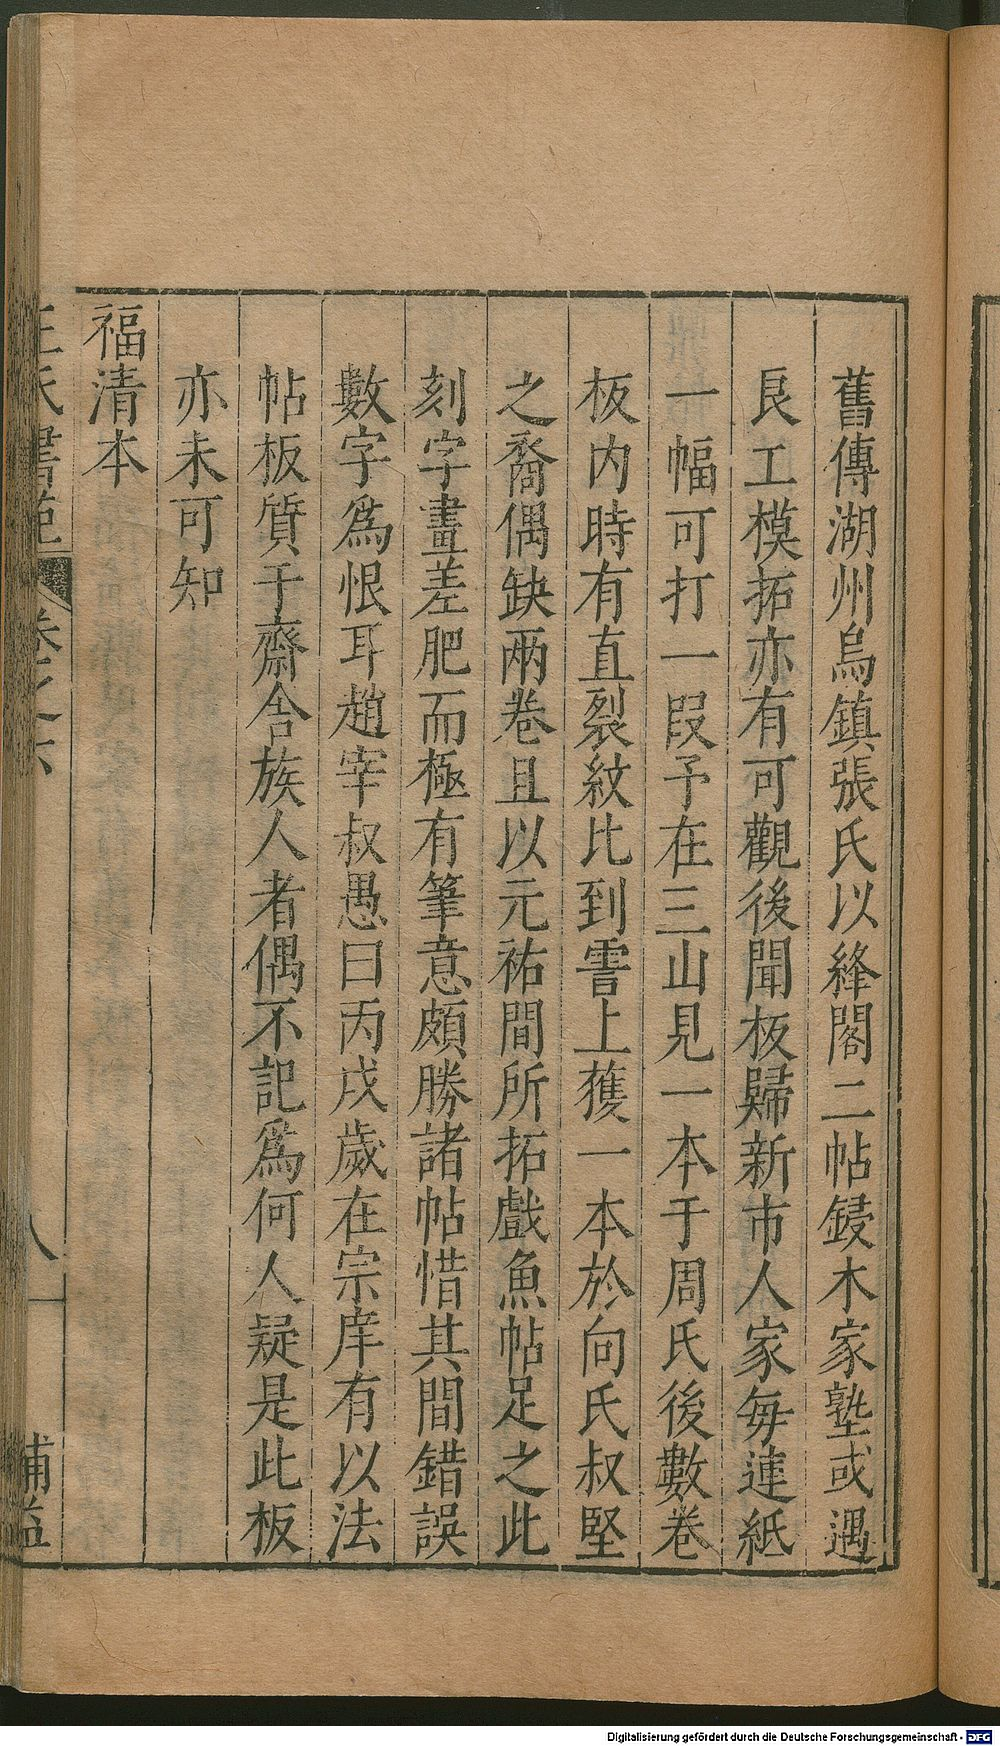 舊傳湖州烏鎮張氏以絳閣二帖鋟木家塾或遇
良工模拓亦有可觀後聞板歸新市人家每連紙
一幅可打一段予在三山見一本于周氏後數卷
板内時有直裂紋比到霅上獲一本於向氏叔堅
之裔偶缺兩卷且以元祐間所拓戲魚帖足之此
刻字畫差肥而極有筆意頗勝諸帖惜其間錯誤
數字爲恨耳趙宰叔愚曰丙戌歲在宗庠有以法
帖板質于齋舍族人者偶不記爲何人疑是此板
亦未可知
福清本
王氏書苑 卷之六 八 補益
Digitalisierung gefördert durch die Deutsche Forschungsgemeinschaft - DFG